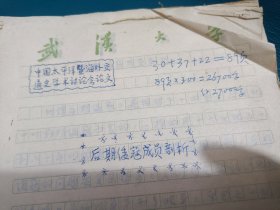 武汉大学
中国太平洋暨海外交
通史学术讨论会论文
30+37+22=89页
89页×300=26700字
约27000字
后期倭寇成员剖析